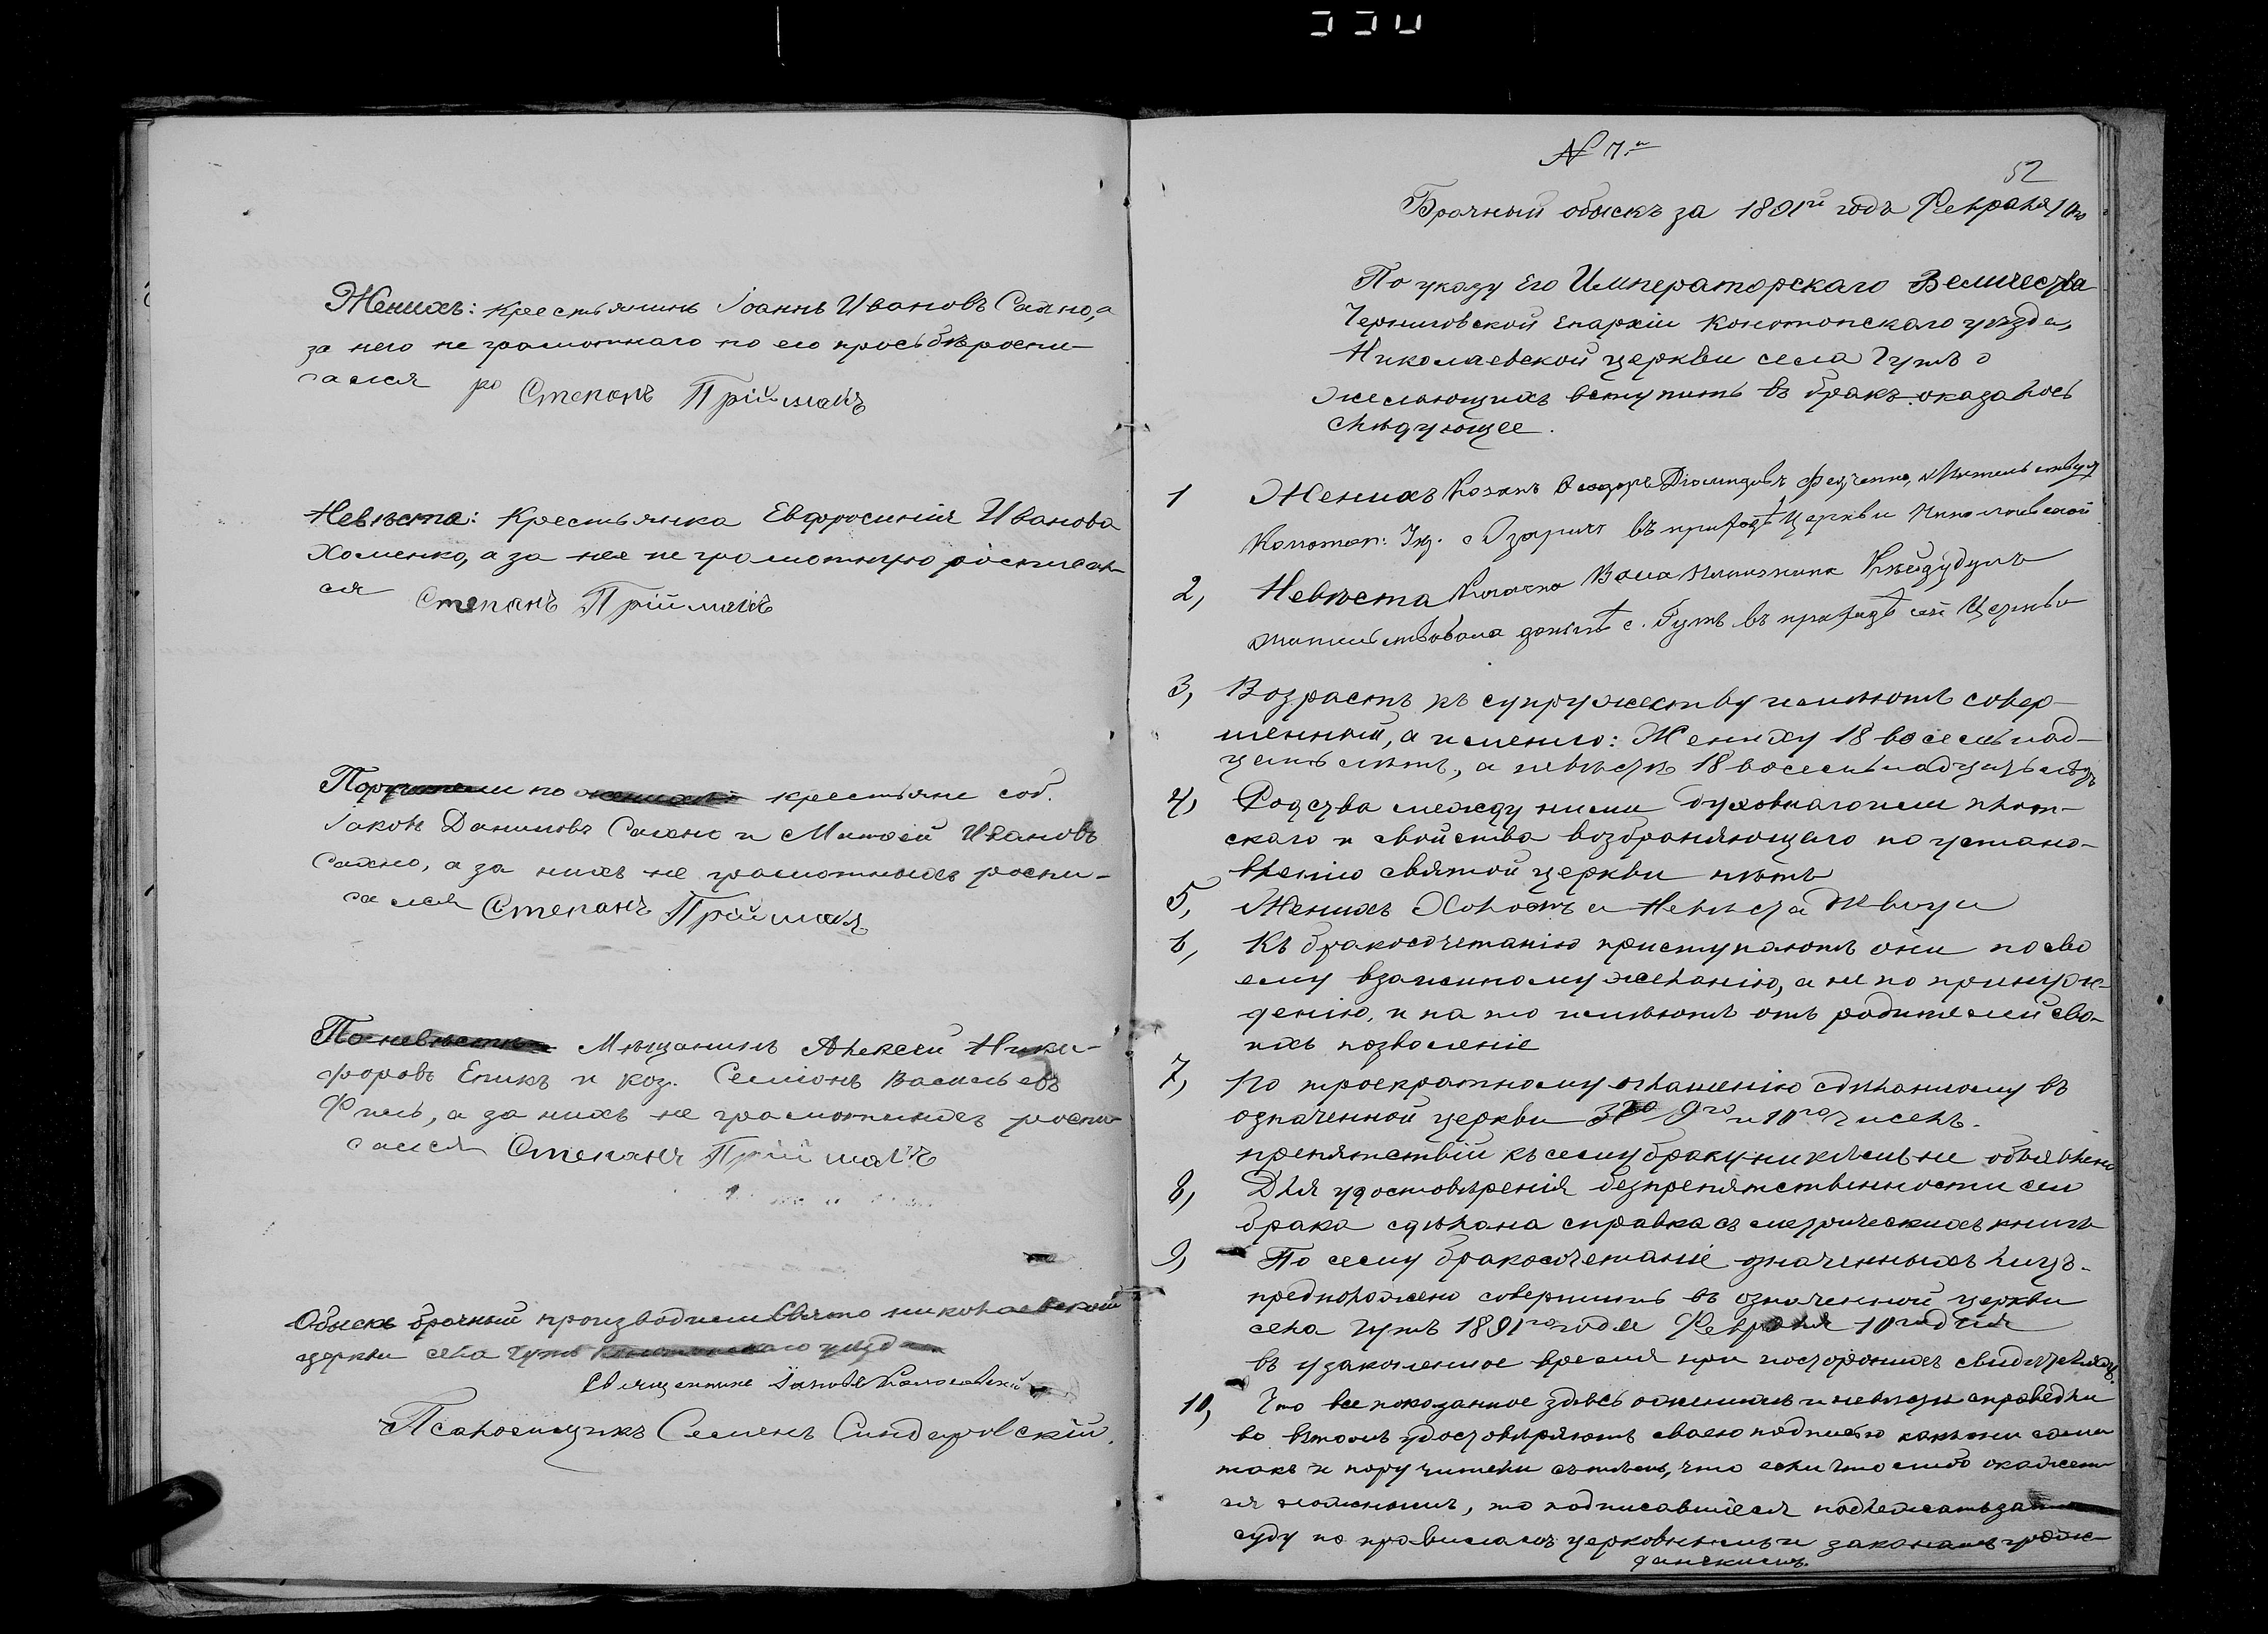 Женихъ: крестьянинъ Іоаннъ Ивановъ Сахно, а
за него не грамотнаго по его просьбѣ роспи-
сался Степанъ Пріймакъ
Невѣста: Крестьянка Евфросинія Иванова
Хоменко, а за нея не грамотную росписал-
ся Степанъ Пріймакъ
Поручители по женихѣ крестьяне соб.
Іаковъ Даниловъ Сахно и Матѳей Ивановъ
Сахно, а за нихъ не грамотныхъ роспи-
сался Степанъ Пріймакъ
По невѣстѣ Мѣщанинъ Алексей Ники-
форовъ Еникъ и коз. Семіонъ Васильевъ
а за нихъ не грамотныхъ роспи-
сался Степанъ Пріймакъ
Обыскъ брачный производили Свято николаевской
церкви села Гутъ Конотопскаго уезда
Священникъ Іаковъ
Псаломщикъ Семенъ Синдаровскій.
N 7й
52
Брачный обыскъ за 1891й годъ Февраля 10го
По указу Его Императорскаго Величества
Черниговской Епархіи Конотопскаго уѣзда,
Николаевской церкви села Гутъ о
желающихъ вступить въ бракъ оказалось
слѣдующее.
1 Женихъ Козакъ Ѳеодоръ Діомидовъ жительствуя
Конотоп: Уѣз. с Озаричъ въ приходѣ Церкви Николаевской
2, Невѣста Козачка
жительствовала донынѣ с. Гутъ въ приходѣ сей Церкви
3, Возрастъ къ супружеству имѣютъ совер-
шенный, а именно: Жениху 18 восемьнад-
цать лѣтъ, а невѣстѣ 18 восемьнадцать лѣтъ
4, Родства между ними духовнаго или плот-
скаго и свойства возбраняющаго по устано-
вленію святой церкви нѣтъ
5, Женихъ Холостъ а Невѣста Двица
6, Къ бракосочетанію приступаютъ они по сво
ему взаимному желанію, а не по принуж-
денію, и на то имѣютъ отъ родителей сво-
ихъ позволеніе
7, По троекратному оглашенію сдѣланному въ
означенной церкви 3го 9го и 10го чиселъ.
препятствій къ сему браку никѣмъ не объявлено
8, Для удостовѣренія безпрепятственности сего
брака сдѣлана справка съ метрическихъ книгъ
9, По сему бракосочетаніе означенныхъ лицъ
предположено совершить въ означенной церкви
села Гутъ 1891го года Февраля 10го дня
въ узаконенное время при постороннихъ свидѣтеляхъ.
10, Что все показанное здѣсь о женихѣ и невѣстѣ справедли
во въ томъ удостовѣряютъ своею подписью какъ они сами
такъ и поручители съ тѣмъ, что если что либо окажет
ся ложнымъ, то подписавшіеся подлежатъ за то
суду по правиламъ церковнымъ и законамъ граж-
данскимъ.